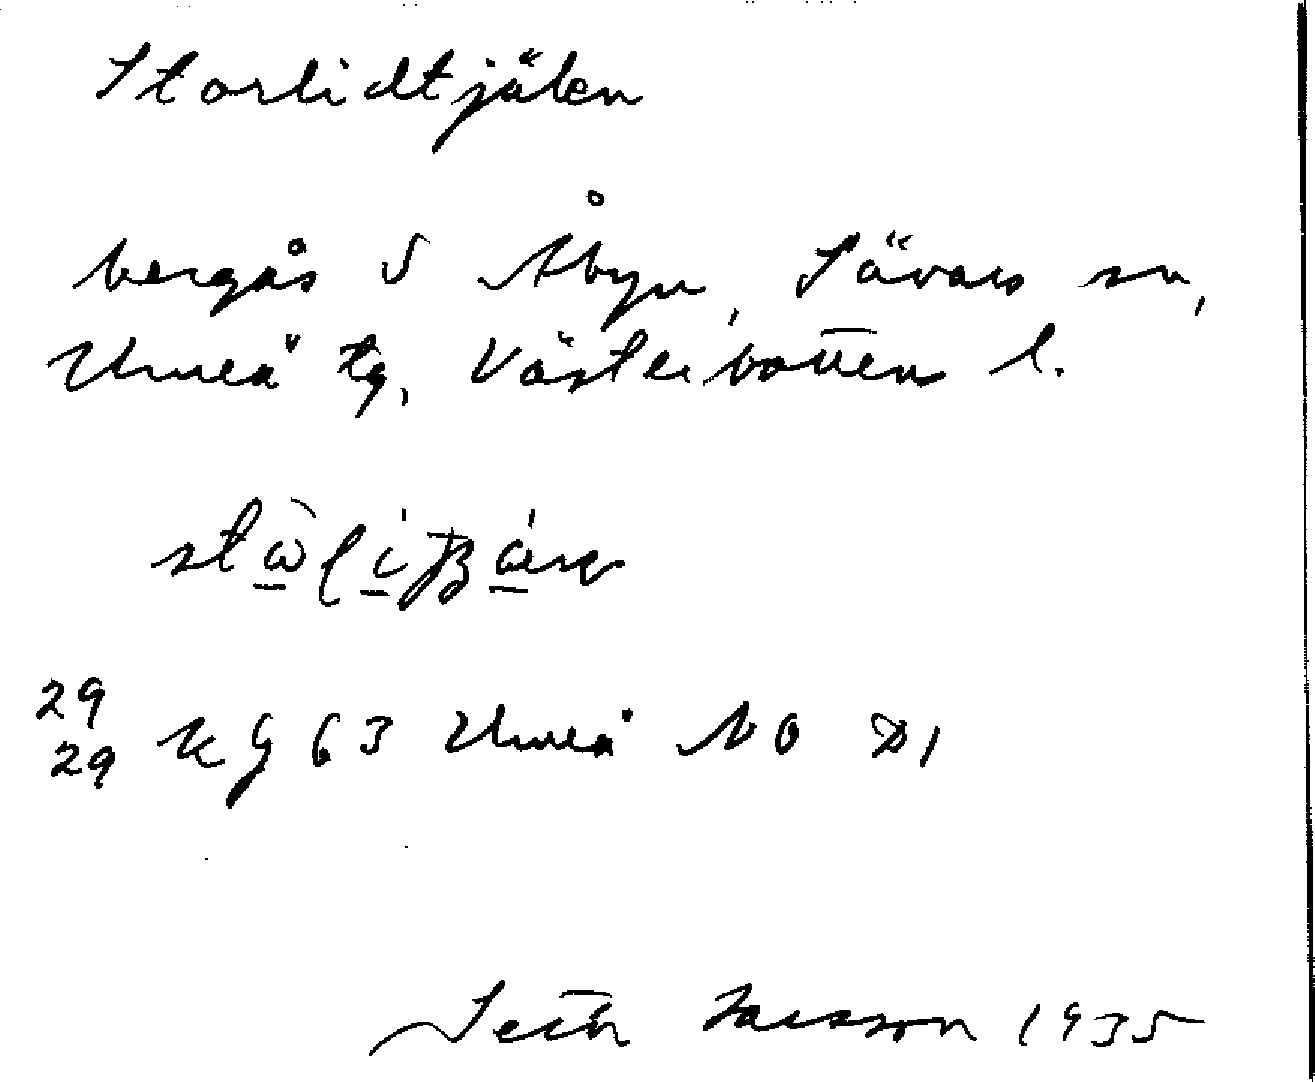 Storlidtjälen
bergås S Åbyn, Sävars sn,
Umeå tg, Västerbotten l.
29
29 KG 63 Umeå NO D1
Seth Jansson 1935